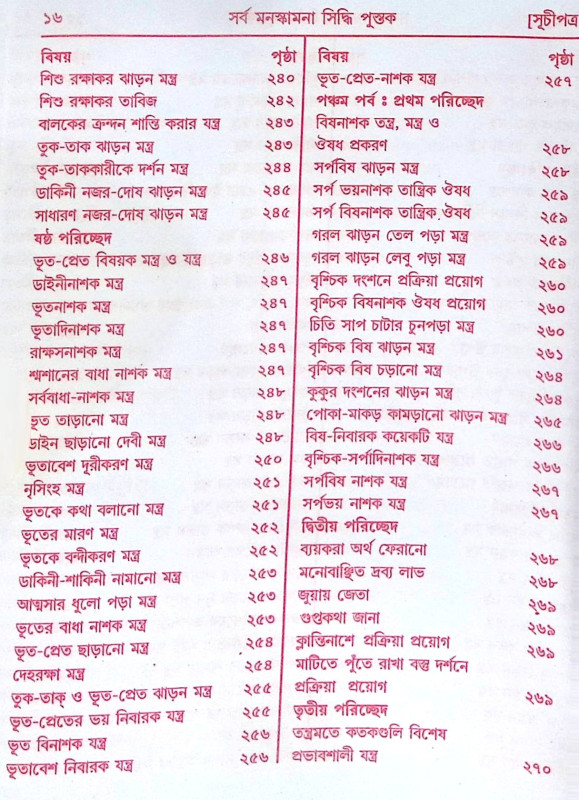 ১৬ সর্ব মনস্কামনা সিদ্ধি পুস্তক [সূচীপত্র
বিষয় পৃষ্ঠা
শিশু রক্ষাকর ঝাড়ন মন্ত্র ২৪০
শিশু রক্ষাকর তাবিজ ২৪২
বালকের ক্রন্দন শান্তি করার যন্ত্র ২৪৩
তুক-তাক ঝাড়ন মন্ত্র ২৪৩
তুক-তাককারীকে দর্শন মন্ত্র ২৪৪
ডাকিনী নজর-দোষ ঝাড়ন মন্ত্র ২৪৫
সাধারণ নজর-দোষ ঝাড়ন মন্ত্র ২৪৫
ষষ্ঠ পরিচ্ছেদ
ভূত-প্রেত বিষয়ক মন্ত্র ও যন্ত্র ২৪৬
ডাইনীনাশক মন্ত্র ২৪৭
ভূতনাশক মন্ত্র ২৪৭
ভূতাদিনাশক মন্ত্র ২৪৭
রাক্ষসনাশক মন্ত্র ২৪৭
শ্মশানের বাধা নাশক মন্ত্র ২৪৭
সর্ববাধা-নাশক মন্ত্র ২৪৮
ভূত তাড়ানো মন্ত্র ২৪৮
ডাইন ছাড়ানো দেবী মন্ত্র ২৪৮
ভূতাবেশ দূরীকরণ মন্ত্র ২৫০
নৃসিংহ মন্ত্র ২৫১
ভূতকে কথা বলানো মন্ত্র ২৫১
ভূতের মারণ মন্ত্র ২৫২
ভূতকে বন্দীকরণ মন্ত্র ২৫২
ডাকিনী-শাকিনী নামানো মন্ত্র ২৫৩
আত্মসার ধুলো পড়া মন্ত্র ২৫৩
ভূতের বাধা নাশক মন্ত্র ২৫৩
ভূত-প্রেত ছাড়ানো মন্ত্র ২৫৪
দেহরক্ষা মন্ত্র ২৫৪
তুক-তাক্ ও ভূত-প্রেত ঝাড়ন মন্ত্র ২৫৫
ভূত-প্রেতের ভয় নিবারক যন্ত্র ২৫৫
ভূত বিনাশক যন্ত্র ২৫৬
ভূতাবেশ নিবারক যন্ত্র ২৫৬
বিষয় পৃষ্ঠা
ভূত-প্রেত-নাশক যন্ত্র ২৫৭
পঞ্চম পর্ব : প্রথম পরিচ্ছেদ
বিষনাশক তন্ত্র, মন্ত্র ও
ঔষধ প্রকরণ ২৫৮
সর্পবিষ ঝাড়ন মন্ত্র ২৫৮
সর্প ভয়নাশক তান্ত্রিক ঔষধ ২৫৯
সর্প বিষনাশক তান্ত্রিক ঔষধ ২৫৯
গরল ঝাড়ন তেল পড়া মন্ত্র ২৫৯
গরল ঝাড়ন লেবু পড়া মন্ত্র ২৫৯
বৃশ্চিক দংশনে প্রক্রিয়া প্রয়োগ ২৬০
বৃশ্চিক বিষনাশক ঔষধ প্রয়োগ ২৬০
চিতি সাপ চাটার চুনপড়া মন্ত্র ২৬০
বৃশ্চিক বিষ ঝাড়ন মন্ত্র ২৬১
বৃশ্চিক বিষ চড়ানো মন্ত্র ২৬৪
কুকুর দংশনের ঝাড়ন মন্ত্র ২৬৪
পোকা-মাকড় কামড়ানো ঝাড়ন মন্ত্র ২৬৫
বিষ-নিবারক কয়েকটি যন্ত্র ২৬৬
বৃশ্চিক-সর্পাদিনাশক যন্ত্র ২৬৬
সর্পবিষ নাশক যন্ত্র ২৬৭
সর্পভয় নাশক যন্ত্র ২৬৭
দ্বিতীয় পরিচ্ছেদ
ব্যয়করা অর্থ ফেরানো ২৬৮
মনোবাঞ্ছিত দ্রব্য লাভ ২৬৮
জুয়ায় জেতা ২৬৯
গুপ্তকথা জানা ২৬৯
ক্লান্তিনাশে প্রক্রিয়া প্রয়োগ ২৬৯
মাটিতে পুঁতে রাখা বস্তু দর্শনে
প্রক্রিয়া প্রয়োগ ২৬৯
তৃতীয় পরিচ্ছেদ
তন্ত্রমতে কতকগুলি বিশেষ
প্রভাবশালী যন্ত্র ২৭০